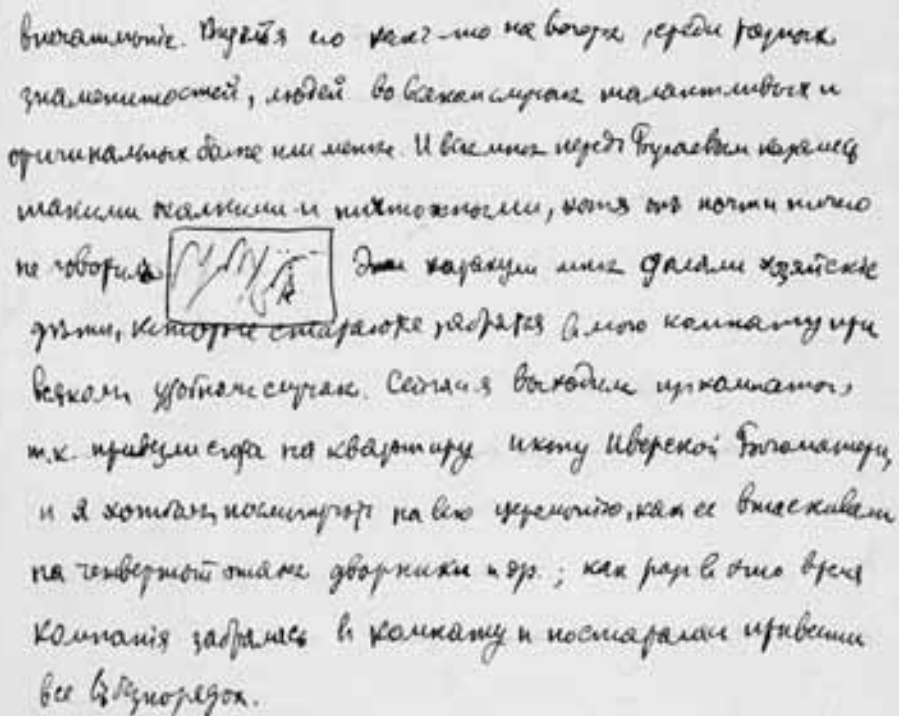 впечатленіе. Видѣлъ его какъ-то на вечерѣ, среди разныхъ
знаменитостей, людей во всякомъ случаѣ талантливыхъ и
оригинальныхъ болѣе или менѣе. И все мнѣ передъ Бугаевымъ казались
такими жалкими и ничтожными, хотя онъ почти ничего
не говорилъ Эти каракули мнѣ сдѣлали хозяйскіе
дѣти, которые стараются забраться въ мою комнату при
всякомъ удобномъ случаѣ. Сейчасъ я выходилъ изъ комнаты,
т.к. привезли сюда на квартиру икону Иверской Богоматери,
и я хотѣлъ посмотрѣть на всю церемонію, какъ ее втаскивали
на четвертый этажъ дворники и др.; какъ разъ в это время
компанія забралась въ комнату и постаралась привести
все въ безпорядокъ.